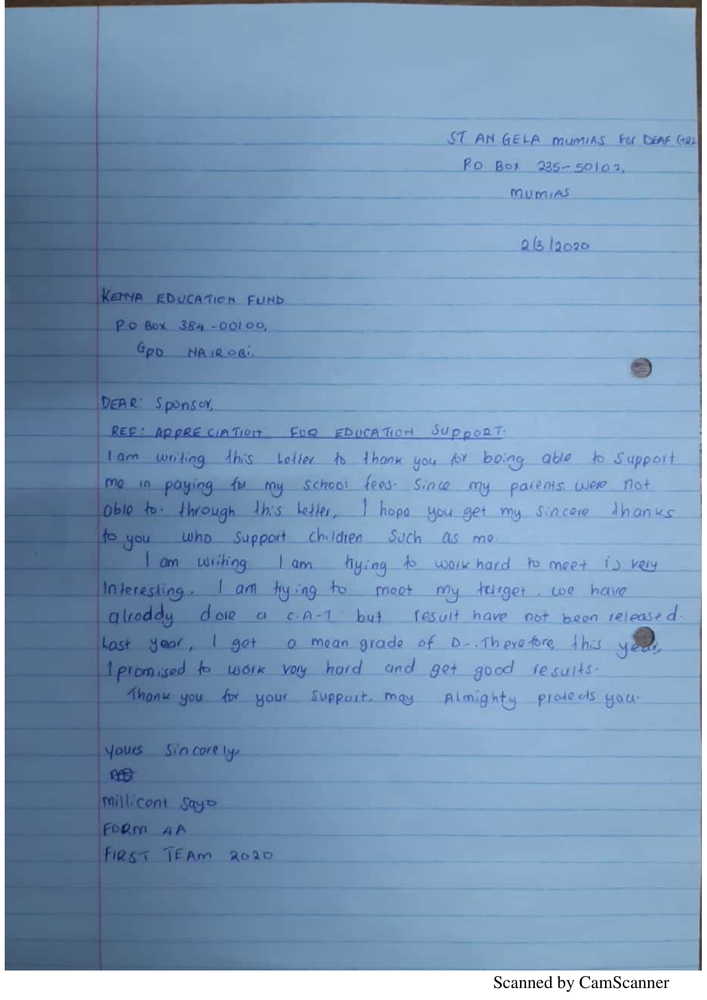 ST ANGELA MUMIAS For DEAF GIRL
P.O Box 235-50102,
MUMIAS
2/3/2020
KENYA EDUCATION FUND
P.O Box 384-00100,
GPO NAIROBI.
DEAR: Sponsor,
REF: APPRECIATION FOR EDUCATION SUPPORT.
I am writing this Letter to thank you for being able to support
me in paying for my school fees. Since my parents were not
able to. through this letter, I hope you get my sincere thanks
to you who support children Such as me.
I am writing I am trying to work hard to meet is very
Interesting. I am trying to meet my target. we have
alroddy done a C.A-T but result have not been released.
Last year, I got a mean grade of D-. Therefore, this year,
I promised to work very hard and get good results.
Thank you for your support. may Almighty protects you.
yours Sincerely,
Millicent Sayo
FORM 4A
FIRST TEAM 2020
Scanned by CamScanner